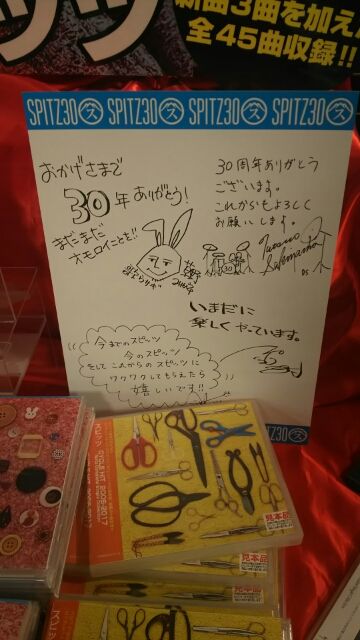 新曲3曲を加え
全45曲収録!!
SPITZ30 SPITZ30 SPITZ30 SPITZ30
おかげさまで
30年ありがとう!
まだまだ
オモロイことも!!
30周年ありがとう
ございます。
これからもよろしく
お願いします。
30
いまだに
楽しくやっています。
今までのスピッツ
今のスピッツ
そしてこれからのスピッツに
ワクワクしてもらえたら
嬉しいです!!
SPITZ30
スピッツ
CYCLE HIT 2006-2017
見本品
見本品
見本品
スピッツ